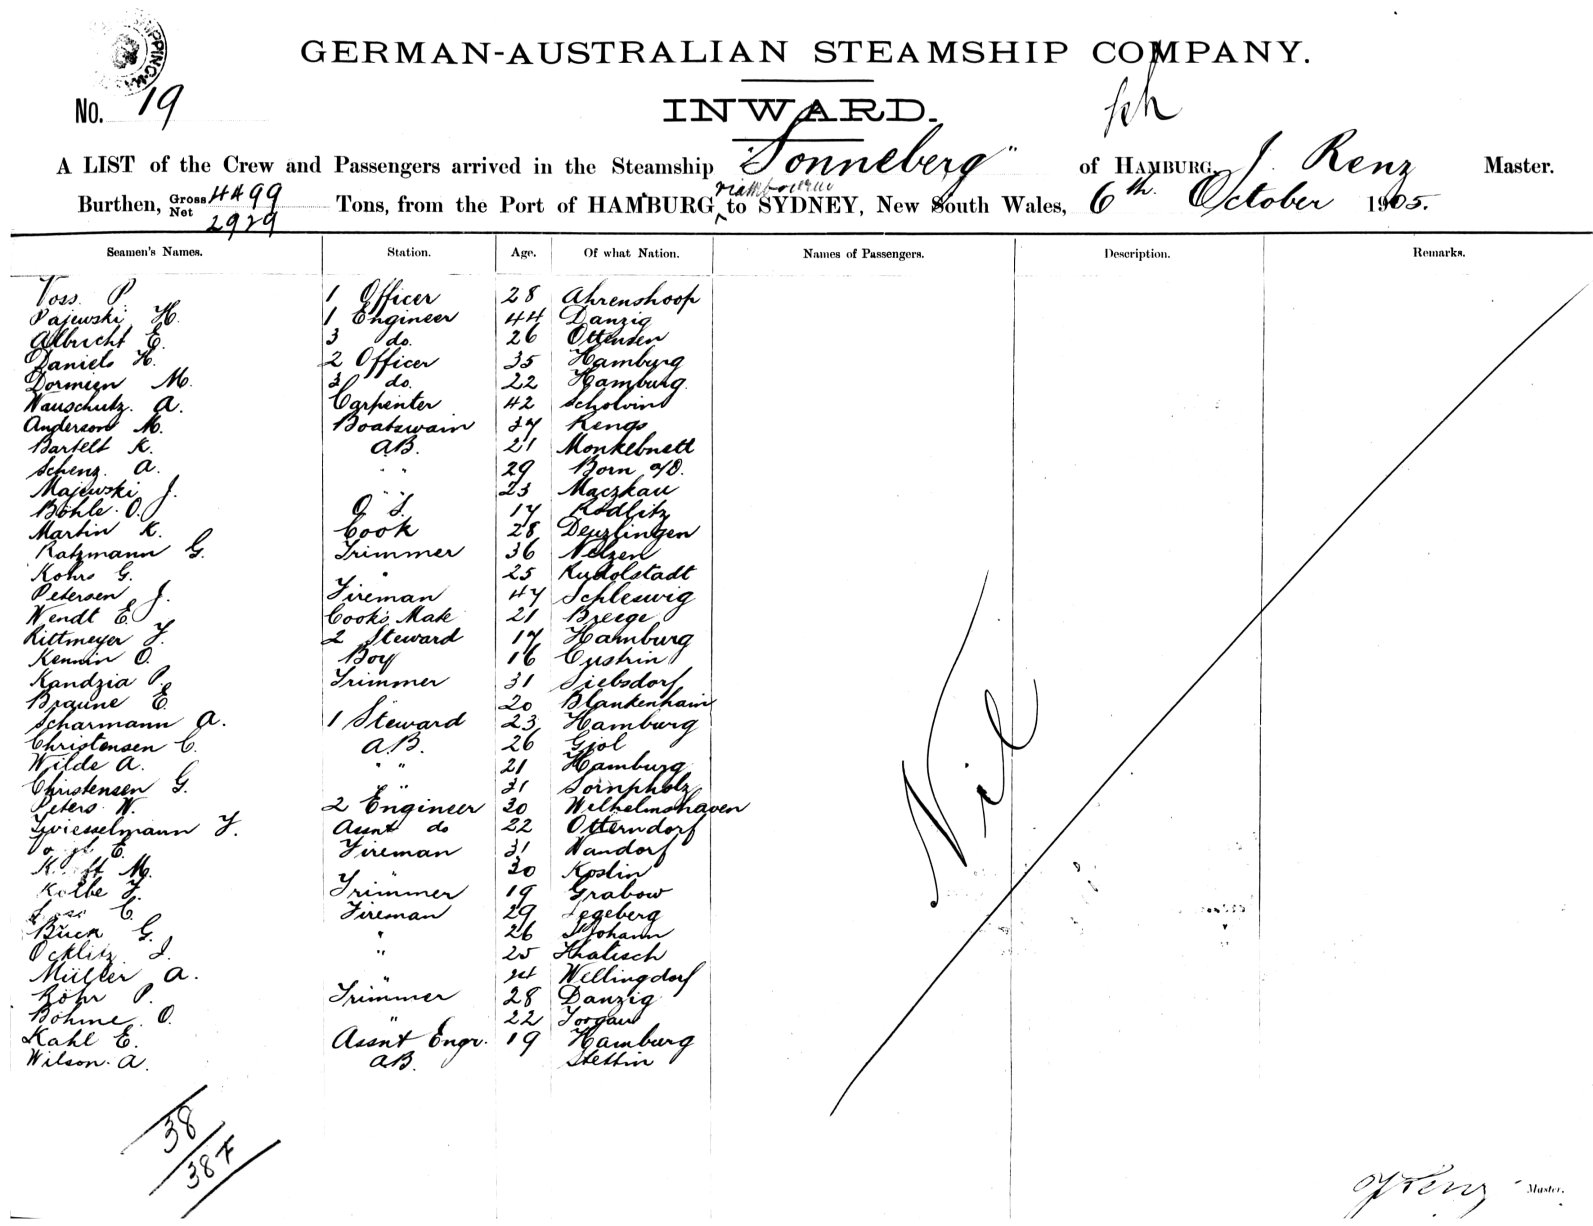 SHIPPING
GERMAN-AUSTRALIAN STEAMSHIP COMPANY.
No. 19
INWARD.
A LIST of the Crew and Passengers arrived in the Steamship "Sonneberg" of HAMBURG, J. Renz Master.
Burthen, Gross 4499 Net 2929 Tons, from the Port of HAMBURG via to SYDNEY, New South Wales, 6th October 1905.
Seamen's Names. Station. Age. Of what Nation. Names of Passengers. Description. Remarks.
Voss P. 1 Officer 28 Ahrenshoop
Pajewski H. 1 Engineer 44 Danzig
Albrecht E. 3 do. 26 Ottensen
Daniels H. 2 Officer 35 Hamburg
Dormeen M. 3 do. 22 Hamburg.
Wauschutz. A. Carpenter 42 Scholvin
Anderson M. Boatswain 37 Rengs
Bartelt K. A.B. 21 Monkebuett
Schenz. A. " " 29 Born a/D.
Majewski J. " " 23 Maczkau
Bohle O. O S. 17 Rodlitz
Martin K. Cook 28 Denzlingen
Ratzmann G. Trimmer 36 Nelzen
Kohrs G. " 25 Rudolstadt
Petersen J. Fireman 47 Schleswig
Wendt E. Cook's Mate 21 Breege
Rittmeyer F. 2 Steward 17 Hamburg
Kennin O. Boy 16 Custrin
Kandzia P. Trimmer 31 Siebsdorf
Braune E. 20 Blankenhain
Scharmann A. 1 Steward 23 Hamburg
Christensen C. A.B. 26 Gjol
Wilde A. " " 21 Hamburg
Christensen G. " 31 Sornpholz
Peters W. 2 Engineer 30 Wilhelmshaven
Zwiesselmann F. Assnt do 22 Otterndorf
E. Fireman 31 Wandorf
M. " 30 Koslin
Kolbe F. Trimmer 19 Grabow
C. Fireman 29 Segeberg
Buck G. " 26 St Johann
Ocklitz J. " 25 Thalisch
Müller A. " 24 Wellingdorf
Röhr P. Trimmer 28 Danzig
Böhme O. " 22 Torgau
Kahl E. Assnt Engr. 19 Hamburg
Wilson. A. A.B. Stettin
Nil
38
38
J Renz Master.